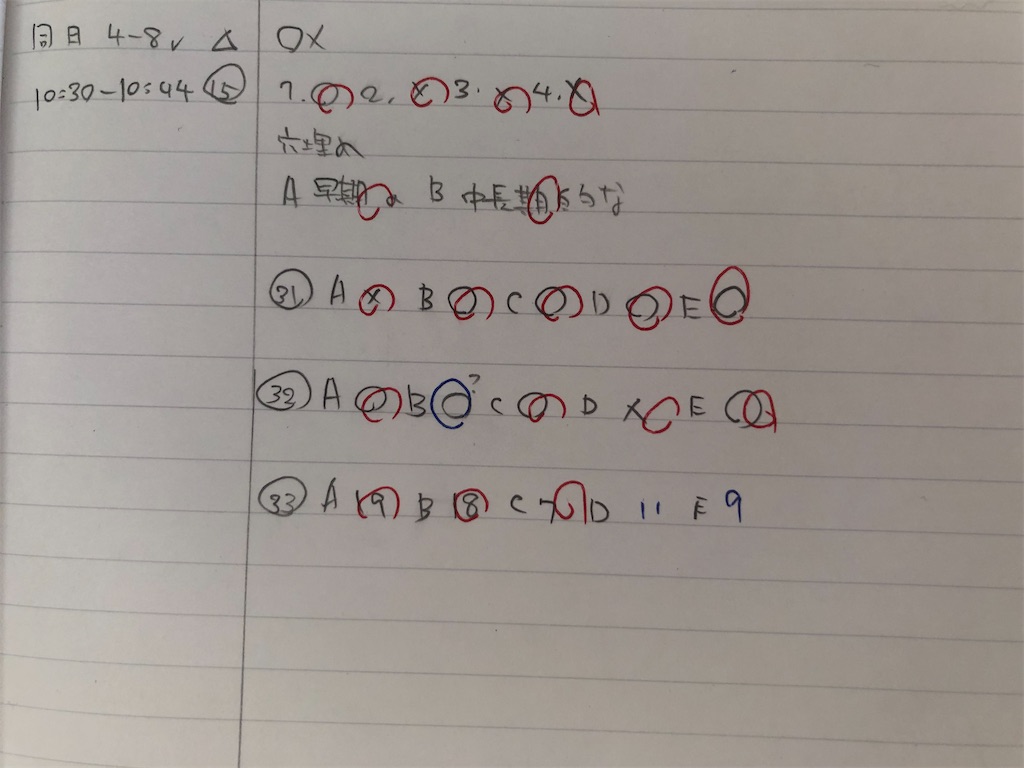 同日 4-8✓ △
OX
10:30-10:44 ⑮
1. ○ 2. × 3. × 4. ×
穴埋め
A 早期 B 中長期的な
㉛ A × B ○ C ○ D ○ E ○
㉜ A ○ B ○? C ○ D × E ○
㉝ A 19 B 18 C 7 D 11 E 9